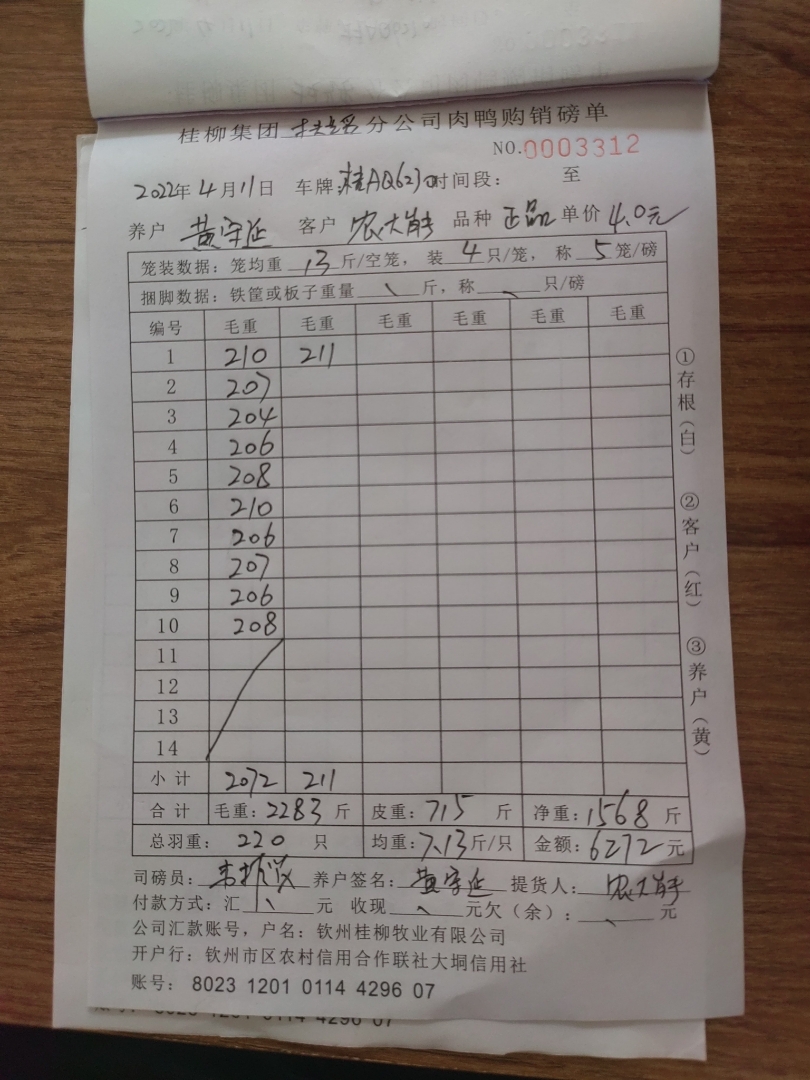 桂柳集团 扶绥 分公司肉鸭购销磅单
NO.0003312
2022年4月11日 车牌:桂AQ6230时间段: 至
养户 黄守延 客户 农大胖 品种 正品 单价 4.0元
笼装数据:笼均重 13 斤/空笼, 装 4 只/笼, 称 5 笼/磅
捆脚数据:铁筐或板子重量 、 斤,称 、 只/磅
编号 毛重 毛重 毛重 毛重 毛重 毛重
1 210 211
2 207
3 204
4 206
5 208
6 210
7 206
8 207
9 206
10 208
11
12
13
14
小计 2072 211
合计 毛重:2283 斤 皮重:715 斤 净重:1568 斤
总羽重: 220 只 均重:7.13斤/只 金额:6272元
司磅员: 养户签名:黄守延 提货人:农大胖
付款方式:汇 、 元 收现 、 元欠(余): 、 元
公司汇款账号,户名:钦州桂柳牧业有限公司
开户行:钦州市区农村信用合作联社大垌信用社
账号: 8023 1201 0114 4296 07
①存根(白) ②客户(红) ③养户(黄)
8023 1201 0114 4296 07